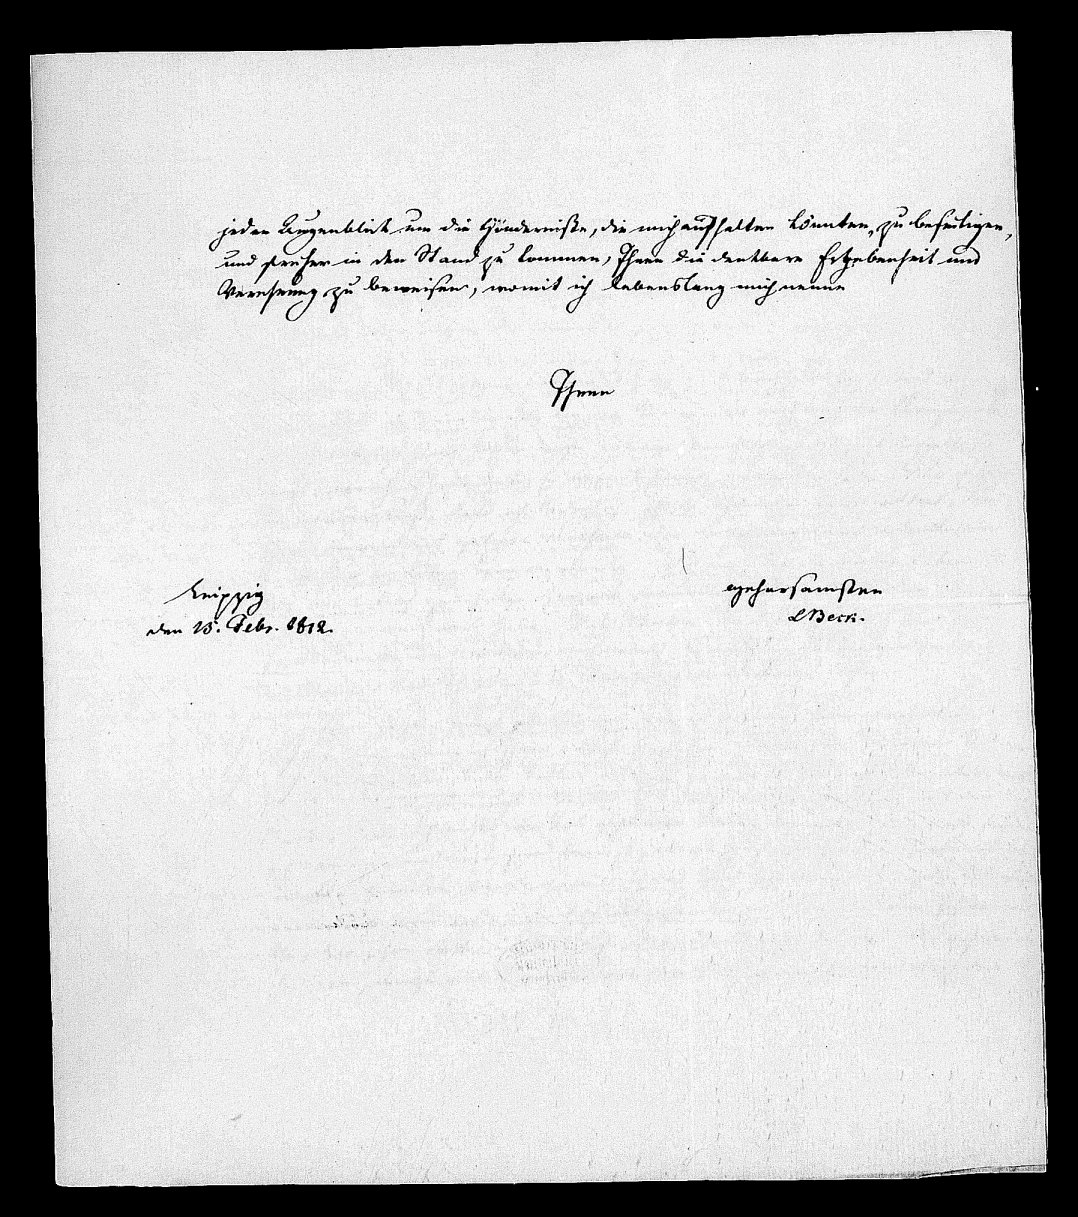 jeden Augenblick um die Hindernisse, die mich aufhalten könnten, zu beseitigen,
und früher in den Stand zu kommen, Ihnen die dankbare Ergebenheit und
Verehrung zu beweisen, womit ich lebenslang mich nenne
Ihren
Leipzig
den 15. Febr. 1812.
gehorsamsten
Beck.